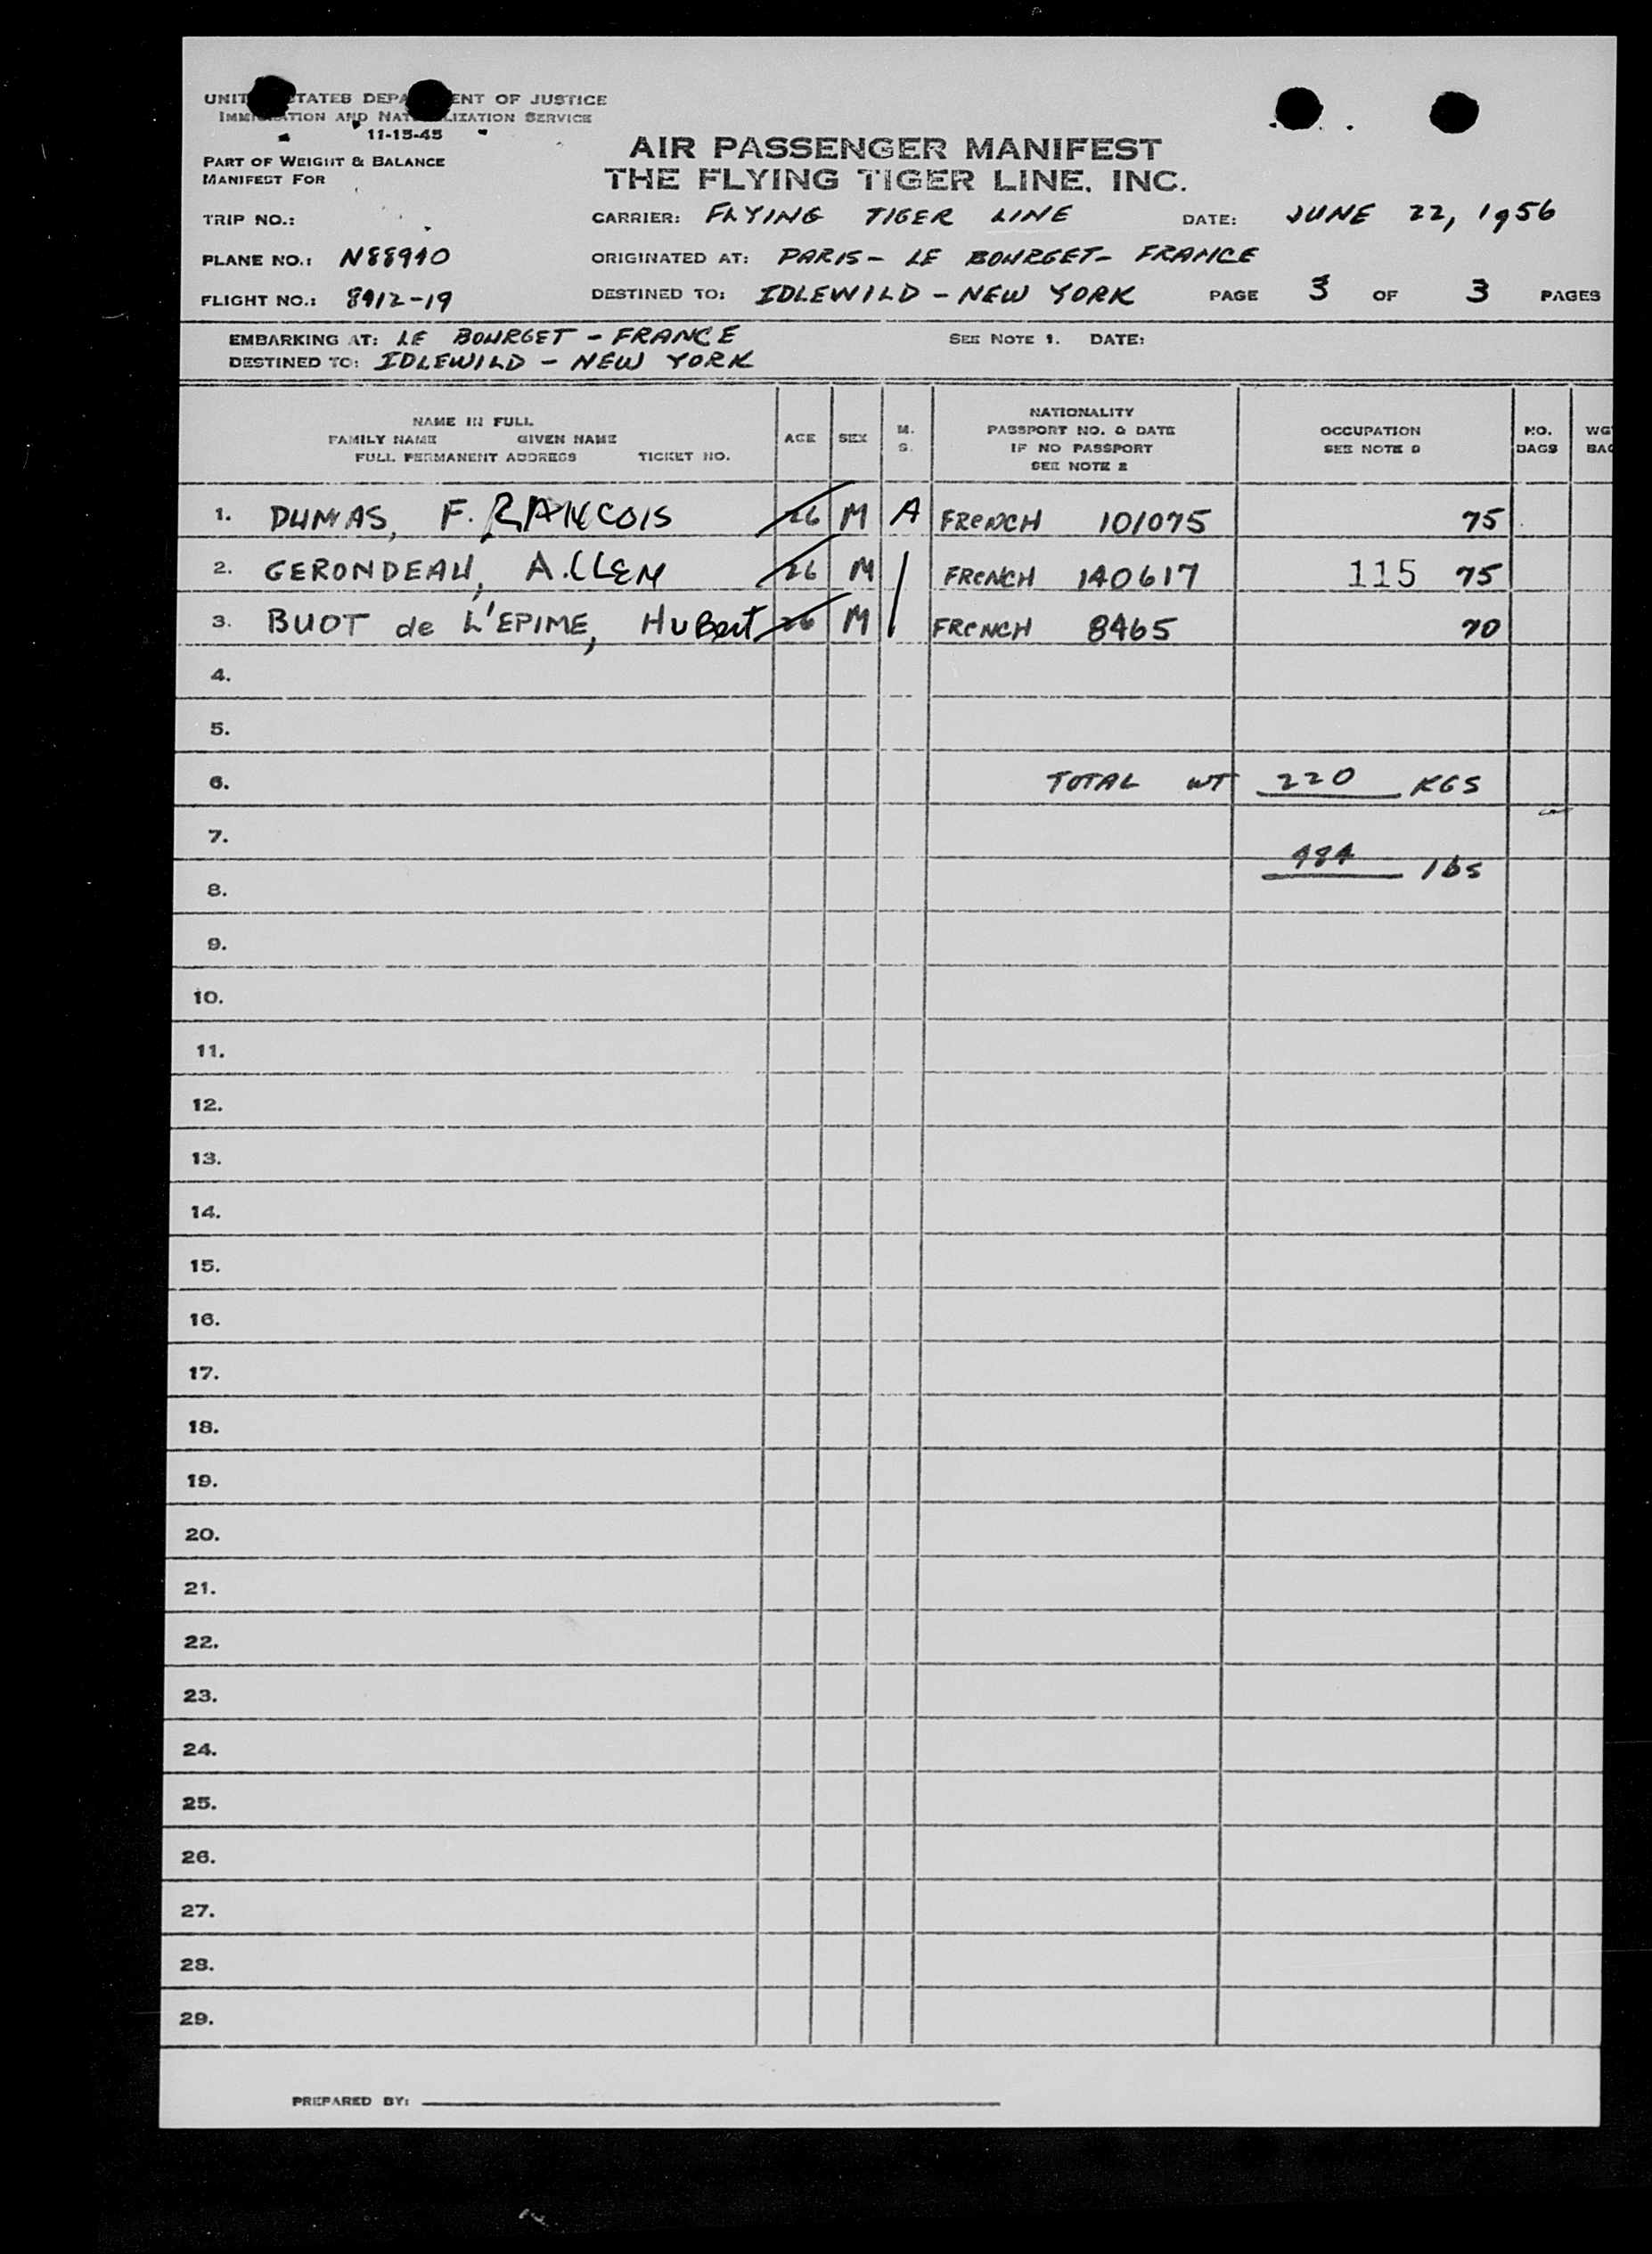 UNITED STATES DEPARTMENT OF JUSTICE
IMMIGRATION AND NATURALIZATION SERVICE
11-15-45
PART OF WEIGHT & BALANCE
MANIFEST FOR
AIR PASSENGER MANIFEST
THE FLYING TIGER LINE, INC.
TRIP NO.: CARRIER: FLYING TIGER LINE DATE: JUNE 22, 1956
PLANE NO.: N88940 ORIGINATED AT: PARIS - LE BOURGET - FRANCE
FLIGHT NO.: 8912-19 DESTINED TO: IDLEWILD - NEW YORK PAGE 3 OF 3 PAGES
EMBARKING AT: LE BOURGET - FRANCE SEE NOTE 1. DATE:
DESTINED TO: IDLEWILD - NEW YORK
NAME IN FULL
FAMILY NAME GIVEN NAME
FULL PERMANENT ADDRESS TICKET NO.
AGE SEX M. S.
NATIONALITY
PASSPORT NO. & DATE
IF NO PASSPORT
SEE NOTE 2
OCCUPATION
SEE NOTE 3
NO.
BAGS
WG
BAG
1. DUMAS, F. RANCOIS 26 M A FRENCH 101075 75
2. GERONDEAU, A.LLEN 26 M FRENCH 140617 115 75
3. BUOT de L'EPIME, HUBert 26 M FRENCH 8465 70
4.
5.
6. TOTAL WT 220 KGS
7.
484 lbs
8.
9.
10.
11.
12.
13.
14.
15.
16.
17.
18.
19.
20.
21.
22.
23.
24.
25.
26.
27.
28.
29.
PREPARED BY: